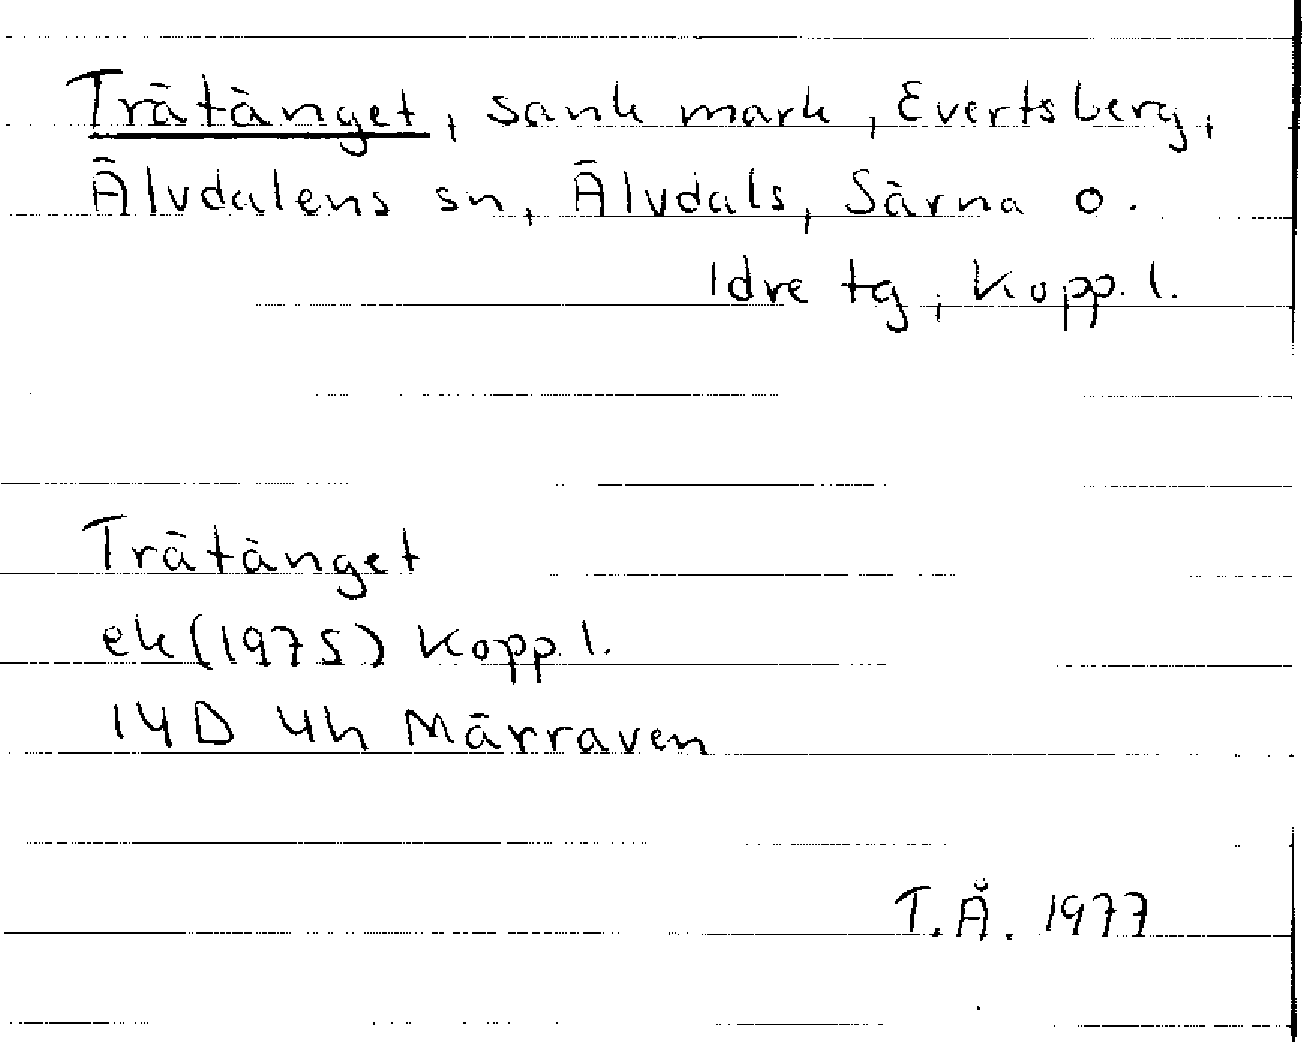 Trätänget, sank mark, Evertsberg,
Älvdalens sn, Älvdals, Särna o.
Idre tg, Kopp. l.
Trätänget
ek (1975) Kopp. l.
14D 4h Märraven
T.Å. 1977